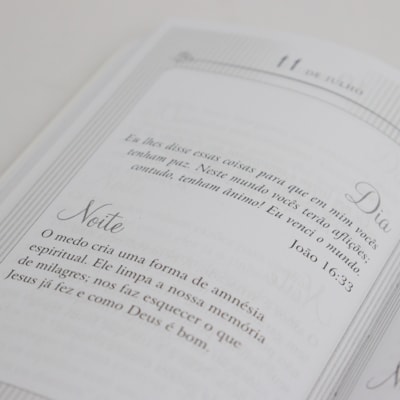 11 DE JULHO
Dia
Eu lhes disse essas coisas para que em mim vocês
tenham paz. Neste mundo vocês terão aflições;
contudo, tenham ânimo! Eu venci o mundo.
João 16:33
Noite
O medo cria uma forma de amnésia
espiritual. Ele limpa a nossa memória
de milagres; nos faz esquecer o que
Jesus já fez e como Deus é bom.